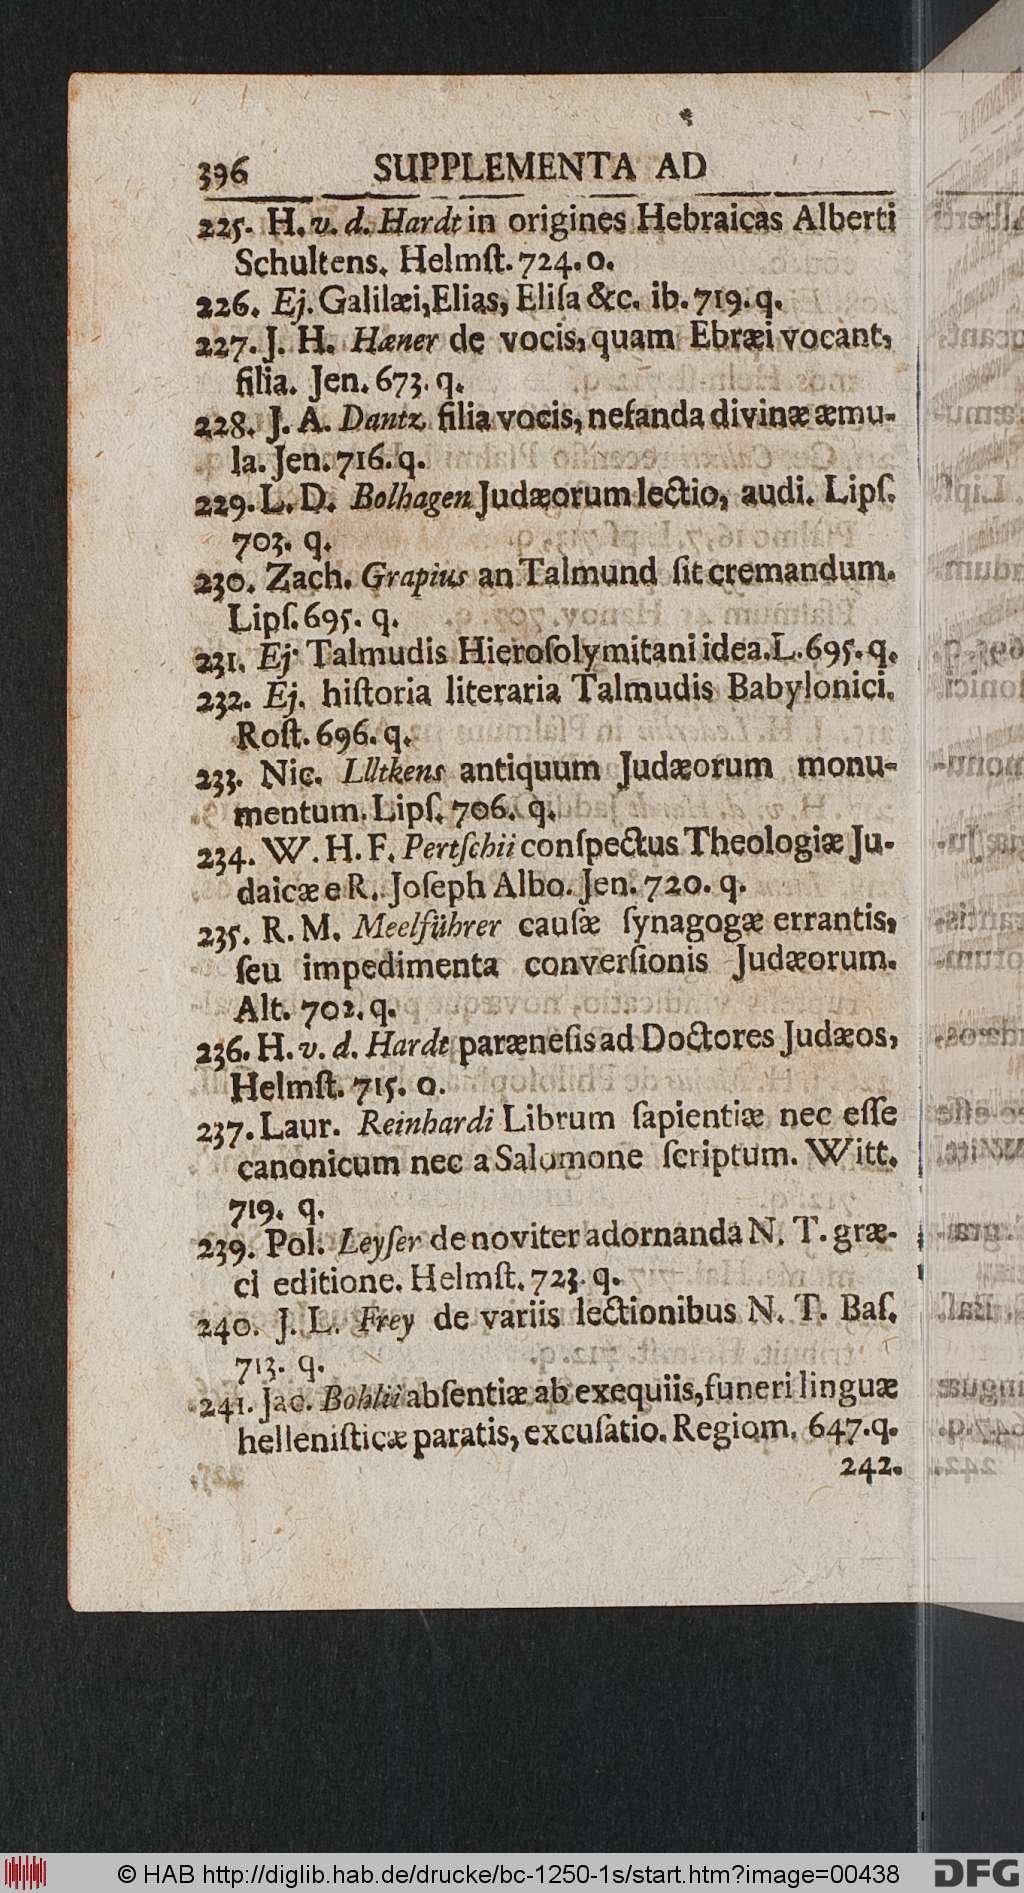 396 SUPPLEMENTA AD
225. H. v. d. Hardt in origines Hebraicas Alberti
Schultens. Helmſt. 724. o.
226. Ej. Galilæi, Elias, Eliſa &c. ib. 719. q.
227. J. H. Hæner de vocis, quam Ebræi vocant,
filia. Jen. 673. q.
228. J. A. Dantz filia vocis, nefanda divinæ æmu-
la. Jen. 716. q.
229. L. D. Bolhagen Judæorum lectio, audi. Lipſ.
703. q.
230. Zach. Grapius an Talmund ſit cremandum.
Lipſ. 695. q.
231. Ej. Talmudis Hieroſolymitani idea. L. 695. q.
232. Ej. hiſtoria literaria Talmudis Babylonici.
Roſt. 696. q.
233. Nic. Lütkens antiquum Judæorum monu-
mentum. Lipſ. 706. q.
234. W. H. F. Pertſchii conſpectus Theologiæ Ju-
daicæ e R. Joſeph Albo. Jen. 720. q.
235. R. M. Meelführer cauſæ ſynagogæ errantis,
ſeu impedimenta converſionis Judæorum.
Alt. 702. q.
236. H. v. d. Hardt paræneſis ad Doctores Judæos,
Helmſt. 715. o.
237. Laur. Reinhardi Librum ſapientiæ nec eſſe
canonicum nec a Salomone ſcriptum. Witt.
719. q.
239. Pol. Leyſer de noviter adornanda N. T. græ-
ci editione. Helmſt. 723. q.
240. J. L. Frey de variis lectionibus N. T. Baſ.
713. q.
241. Jac. Bohlii abſentiæ ab exequiis, funeri linguæ
helleniſticæ paratis, excuſatio. Regiom. 647. q.
242.
© HAB http://diglib.hab.de/drucke/bc-1250-1s/start.htm?image=00438
DFG